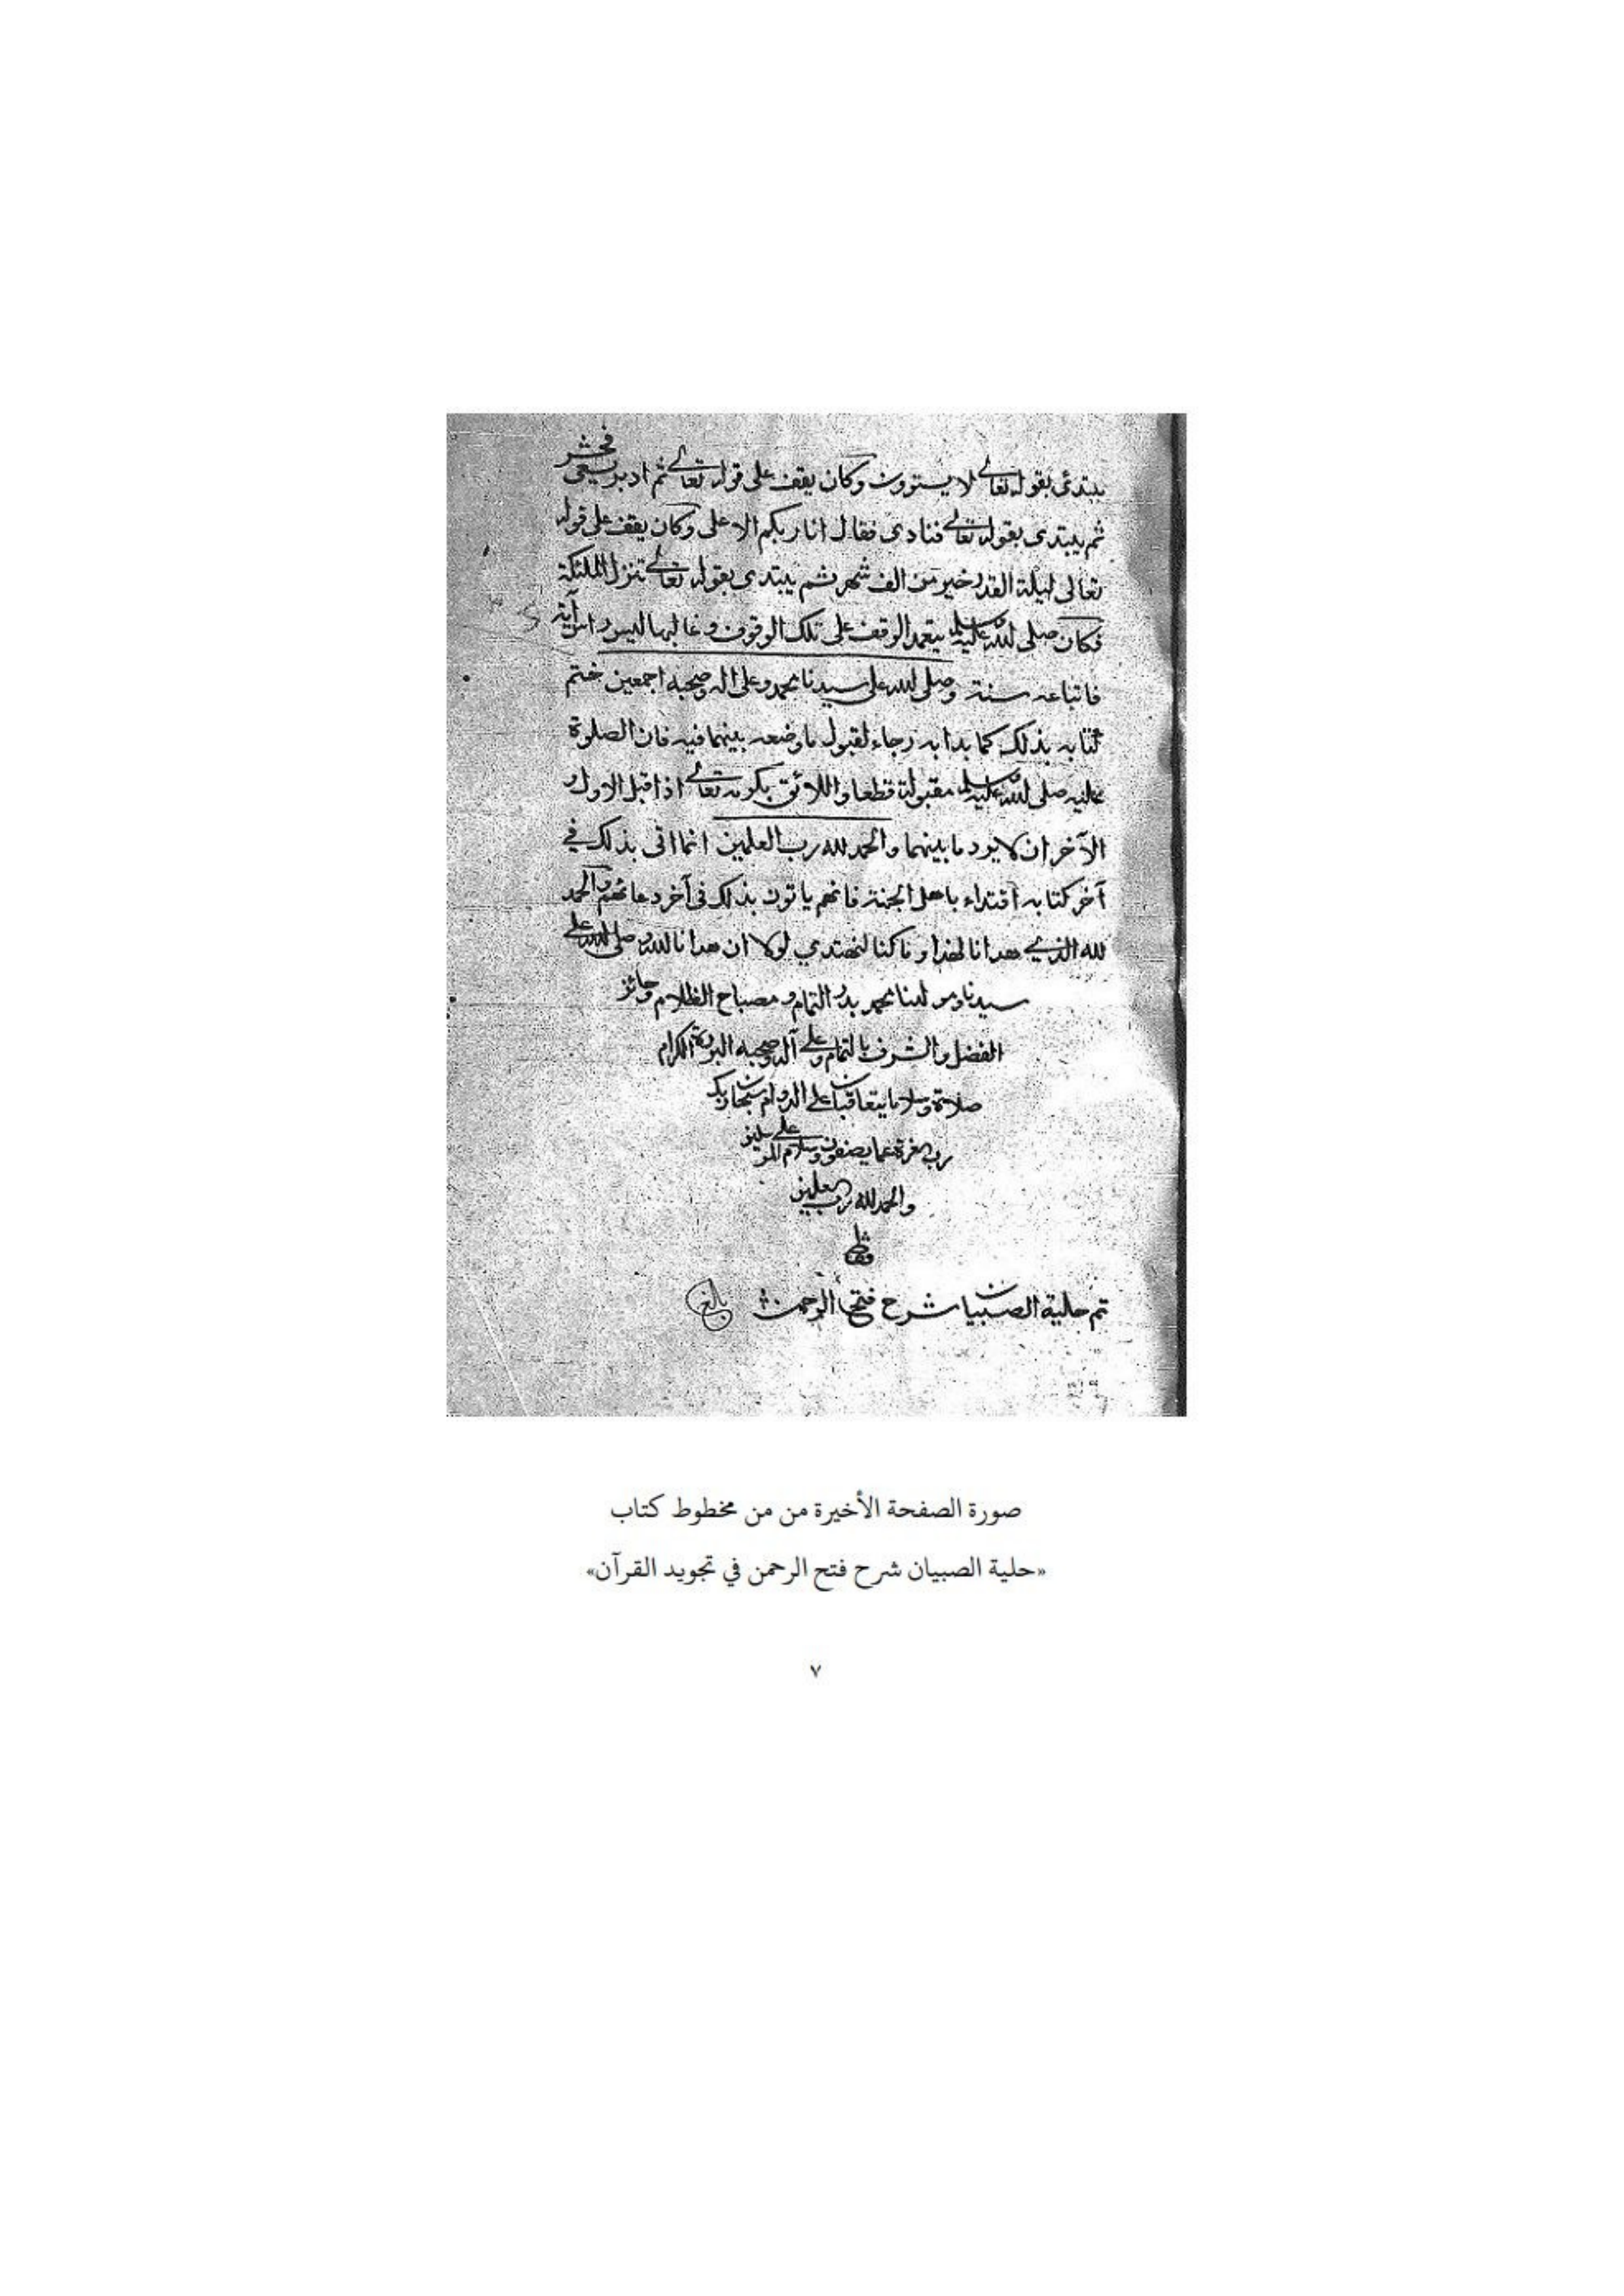 يبتدئ بقوله تعالى لا يستوون وكان يقف على قوله تعالى ثم ادبر يسعى فحشر
ثم يبتدى بقوله تعالى فنادى فقال انا ربكم الاعلى وكان يقف على قوله
تعالى ليلة القدر خير من الف شهر ثم يبتدى بقوله تعالى تنزل الملئكة
فكان صلى الله عليه وسلم يتعمد الوقف على تلك الوقوف وغالبها ليس راس آية
فاتباعه سنة وصلى الله على سيدنا محمد وعلى اله وصحبه اجمعين ختم
كتابه بذلك كما بدا به رجاء لقبول ما وضعه بينهما فيه فان الصلوة
عليه صلى الله عليه وسلم مقبولة قطعا واللائق بكرمه تعالى اذا قبل الاول و
الآخر ان لا يرد ما بينهما والحمد لله رب العلمين انما اتى بذلك في
آخر كتابه اقتداء باهل الجنة فانهم ياتون بذلك فى آخر دعائهم والحمد
لله الذي هدانا لهذا وما كنا لنهتدي لولا ان هدانا الله وصلى الله على
سيدنا ومولينا محمد بدر التمام ومصباح الظلام وحائز
الفضل والشرف بالتمام وعلى آله وصحبه البررة الكرام
صلاة وسلاما يتعاقبان على الدوام سبحان ربك
رب العزة عما يصفون وسلام على المرسلين
والحمد لله رب العلمين
تم حلية الصبيان شرح فتح الرحمن
صورة الصفحة الأخيرة من من مخطوط كتاب
«حلية الصبيان شرح فتح الرحمن في تجويد القرآن»
٧